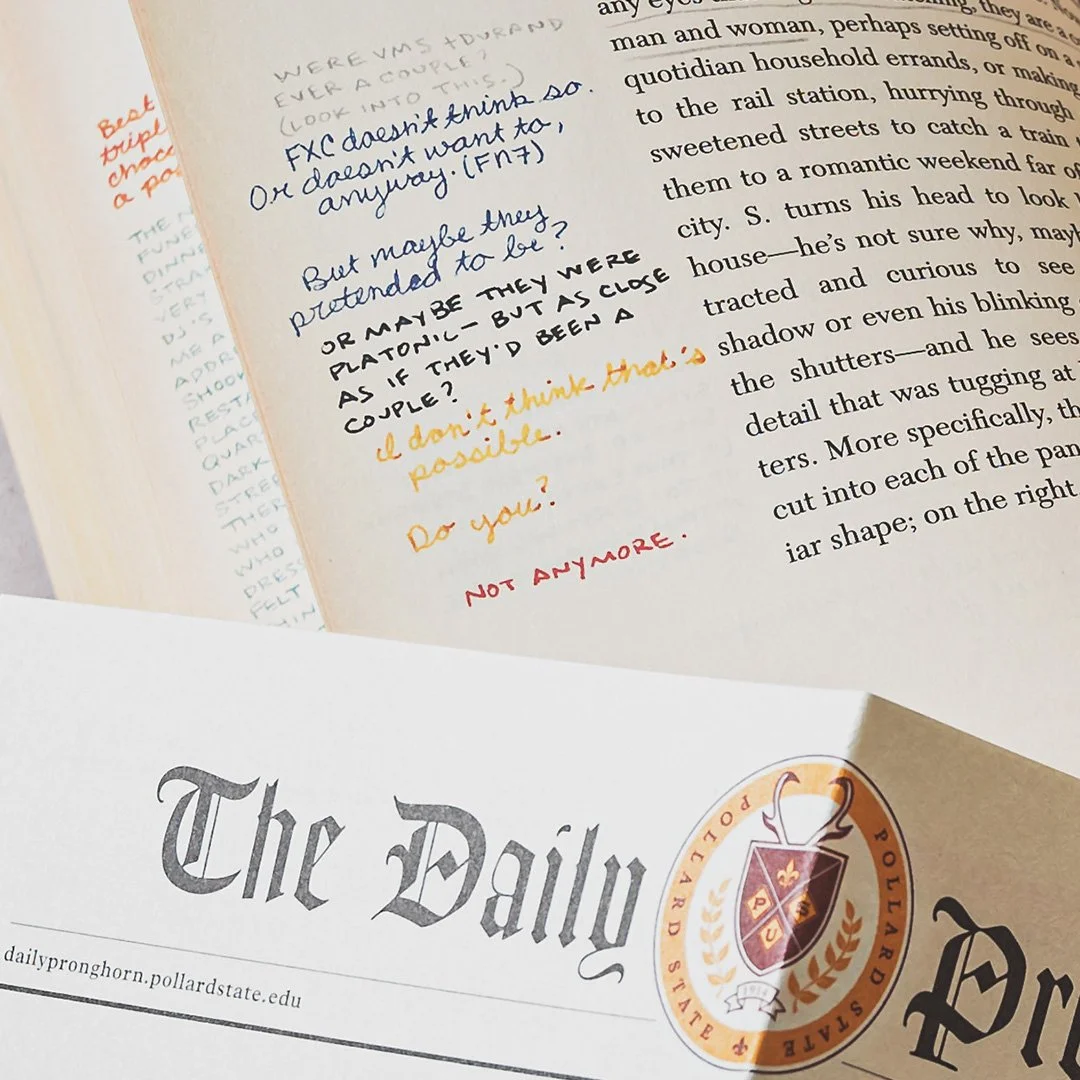 WERE VMS + DURAND
EVER A COUPLE?
(LOOK INTO THIS.)
FXC doesn't think so.
Or doesn't want to,
anyway. (FN7)
But maybe they
pretended to be?
OR MAYBE THEY WERE
PLATONIC— BUT AS CLOSE
AS IF THEY'D BEEN A
COUPLE?
I don't think that's
possible.
Do you?
NOT ANYMORE.
any eyes they are a
man and woman, perhaps setting off on a
quotidian household errands, or making
to the rail station, hurrying through
sweetened streets to catch a train
them to a romantic weekend far of
city. S. turns his head to look
house—he's not sure why, mayb
tracted and curious to see
shadow or even his blinking
the shutters—and he sees
detail that was tugging at
ters. More specifically, th
cut into each of the pan
iar shape; on the right
Best
tripl
choco
a po
THE N
FUNE
DINNE
STRA
VERY
DJ'S
ME A
ADDR
SHOOK
RESTA
PLAC
QUAR
DARK
STREE
THER
WHO
WHO
DRESS
FELT
HIN
The Daily Pro
dailypronghorn.pollardstate.edu
POLLARD STATE
POLLARD STATE
P S
U
1914